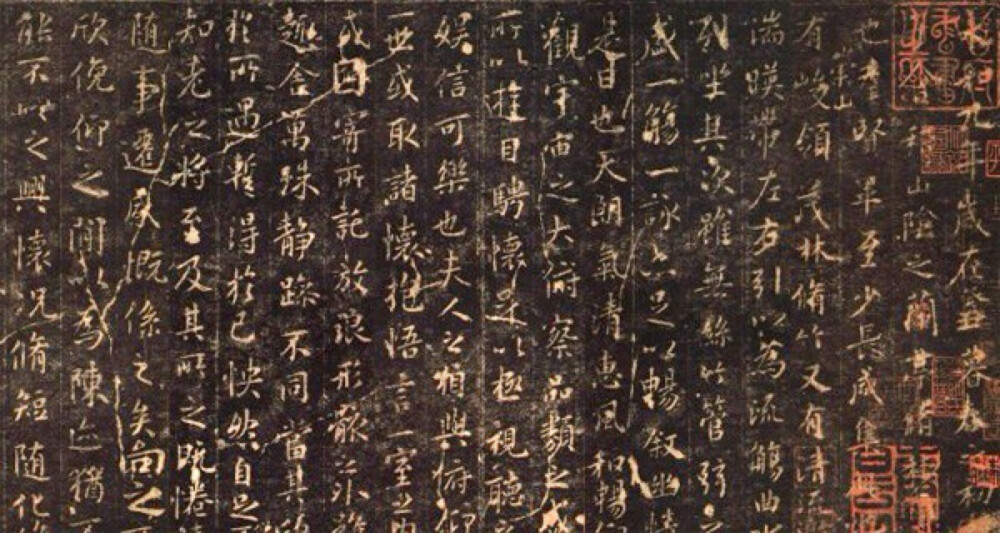 永和九年歲在癸丑暮春之初
稽山陰之蘭亭脩禊
也羣賢畢至少長咸集
崇山
有峻領茂林脩竹又有清流
湍暎帶左右引以為流觴曲水
列坐其次雖無絲竹管弦之
盛一觴一詠亦足以暢敘幽情
是日也天朗氣清惠風和暢仰
觀宇宙之大俯察品類之盛
所以遊目騁懷足以極視聽之
娛信可樂也夫人之相與俯仰
一世或取諸懷抱悟言一室之內
或因寄所託放浪形骸之外雖
趣舍萬殊靜躁不同當其欣
於所遇蹔得於己怏然自足不
知老之將至及其所之既惓情
隨事遷感慨係之矣向之
欣俛仰之閒以為陳迹猶不
能不以之興懷況脩短隨化終